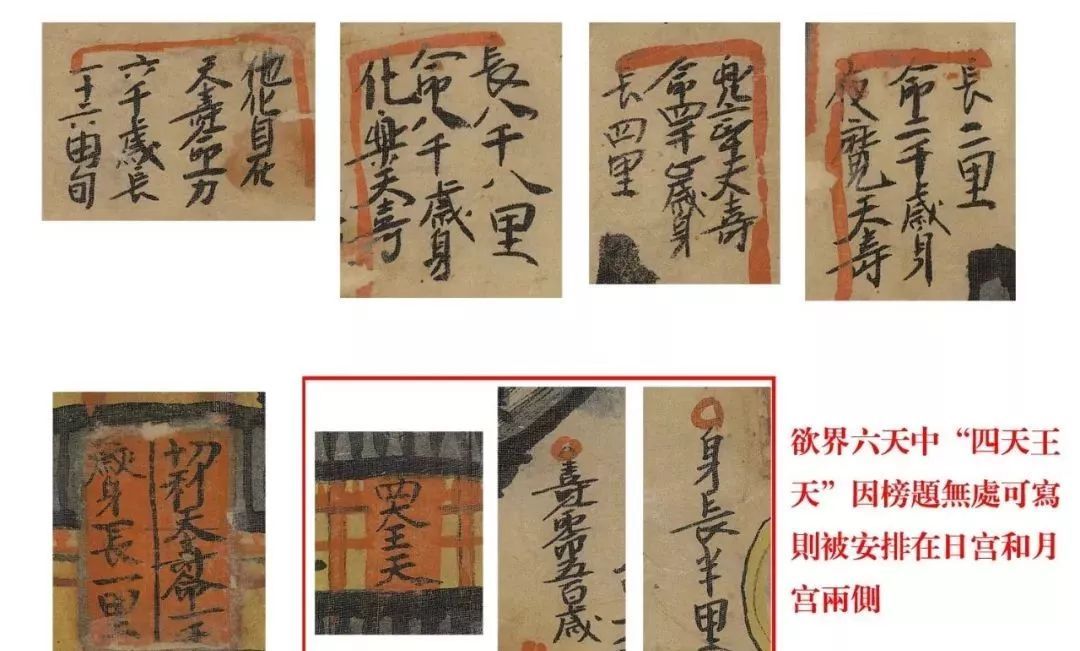 他化自在
天壽命万
六千歲長
一十六由旬
化樂天壽
命八千歲身
長八千八里
兜率天壽
命四千歲身
長四里
夜魔天壽
命二千歲身
長二里
切利天壽命一千
歲身長一里
四天王天
壽命五百歲
身長半里
欲界六天中“四天王
天”因榜題無處可寫
則被安排在日宫和月
宫兩側